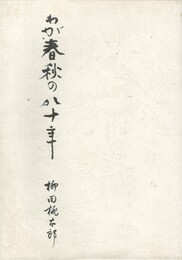 わが春秋の八十年
柳田桃太郎